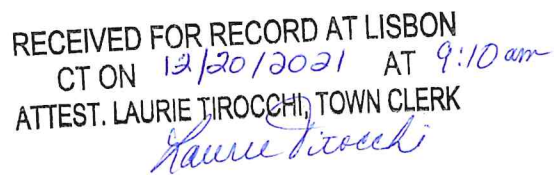 RECEIVED FOR RECORD AT LISBON
CT ON 12/20/2021 AT 9:10 am
ATTEST. LAURIE TIROCCHI, TOWN CLERK
Laurie Tirocchi